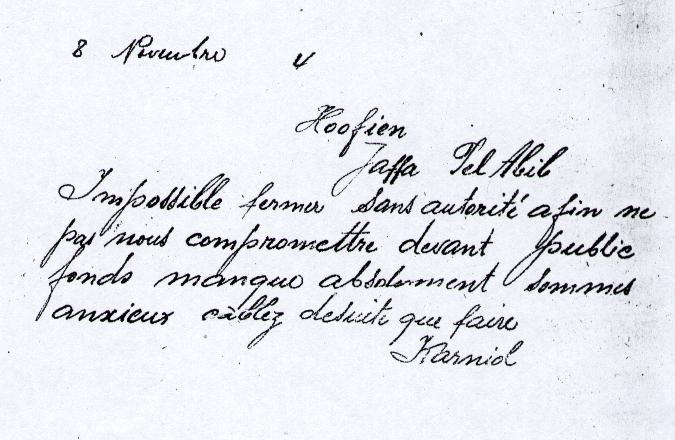 8 Novembre 4
Hoofien
Jaffa Tel Abib
Impossible fermer sans autorité afin ne
pas nous compromettre devant public
fonds manque absolument sommes
anxieux câblez desuite que faire
Karniol